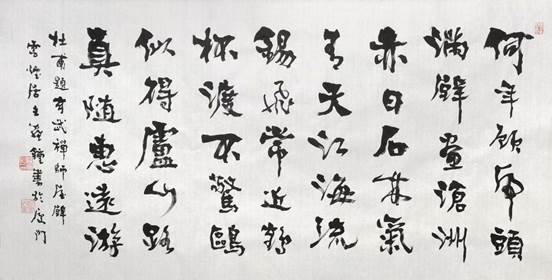 何年顧虎頭
滿壁畫滄洲
赤日石林氣
青天江海流
錫飛常近鶴
杯渡不驚鷗
似得盧山路
真隨惠遠游
杜甫題玄武禪師屋壁
居士 鐘書於廈門